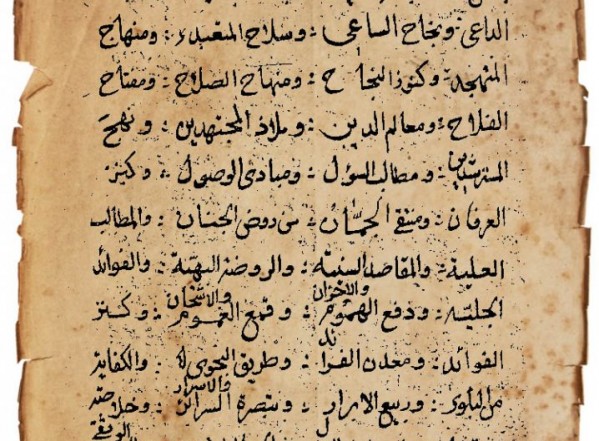 الداعى ∴ ونجاح الساعى ∴ وسلاح المتعبد ∴ ومنهاج
المتهجد ∴ وكنوز النجاح ∴ ومنهاج الصلاح ∴ ومفتاح
الفلاح ∴ ومعالم الدين ∴ وملاذ المجتهدين ∴ ونهج
المسترشدين ∴ ومطالب السؤل ∴ ومبادى الوصول ∴ وكنز
العرفان ∴ ومنتقى الجمان ∴ من روض الجنان ∴ والمطالب
العلية ∴ والمقاصد السنية ∴ والروضة البهية ∴ والفوائد
الجلية ∴ ودفع الهموم والاحزان ∴ وقمع الغموم والاشجان ∴ وكنز
الفوائد ∴ ومعدن الفرائد ∴ وطريق النجوى ∴ والكفاية
من البلوى ∴ وربيع الابرار ∴ وتبصرة السرائر والاسرار ∴ وخلاصة